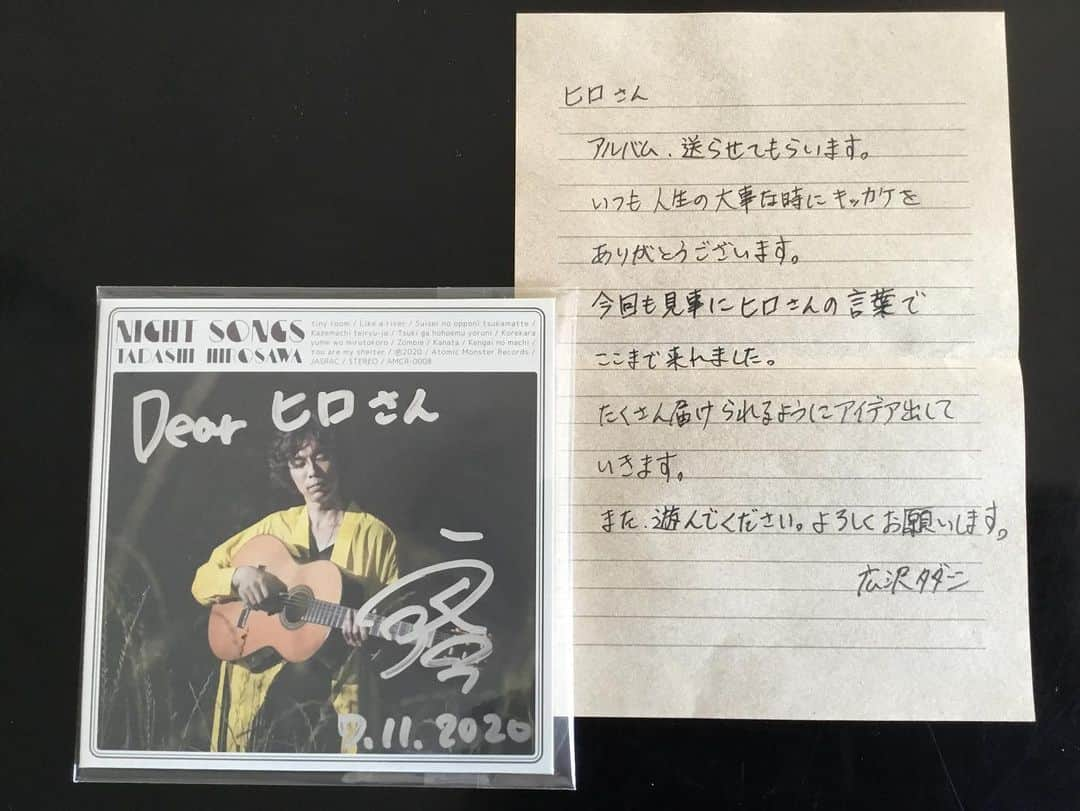 NIGHT SONGS
TADASHI HIROSAWA
tiny room / Like a river / Suisei no oppo ni tsukamatte /
Kazemachi teiryu-jo / Tsuki ga hohoemu yoruni / Korekara
yume wo mirutokoro / Zombie / Kanata / Kengai no machi /
You are my shelter / ℗2020 / Atomic Monster Records /
JASRAC / STEREO / AMCR-0008
Dear ヒロさん
7.11.2020
ヒロさん
アルバム、送らせてもらいます。
いつも人生の大事な時にキッカケを
ありがとうございます。
今回も見事にヒロさんの言葉で
ここまで来れました。
たくさん届けられるようにアイデア出して
いきます。
また、遊んでください。よろしくお願いします。
広沢タダシ